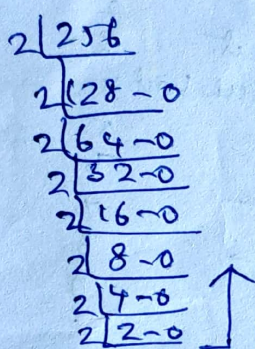 2 256
2 128-0
2 64-0
2 32-0
2 16-0
2 8-0
2 4-0
2 2-0